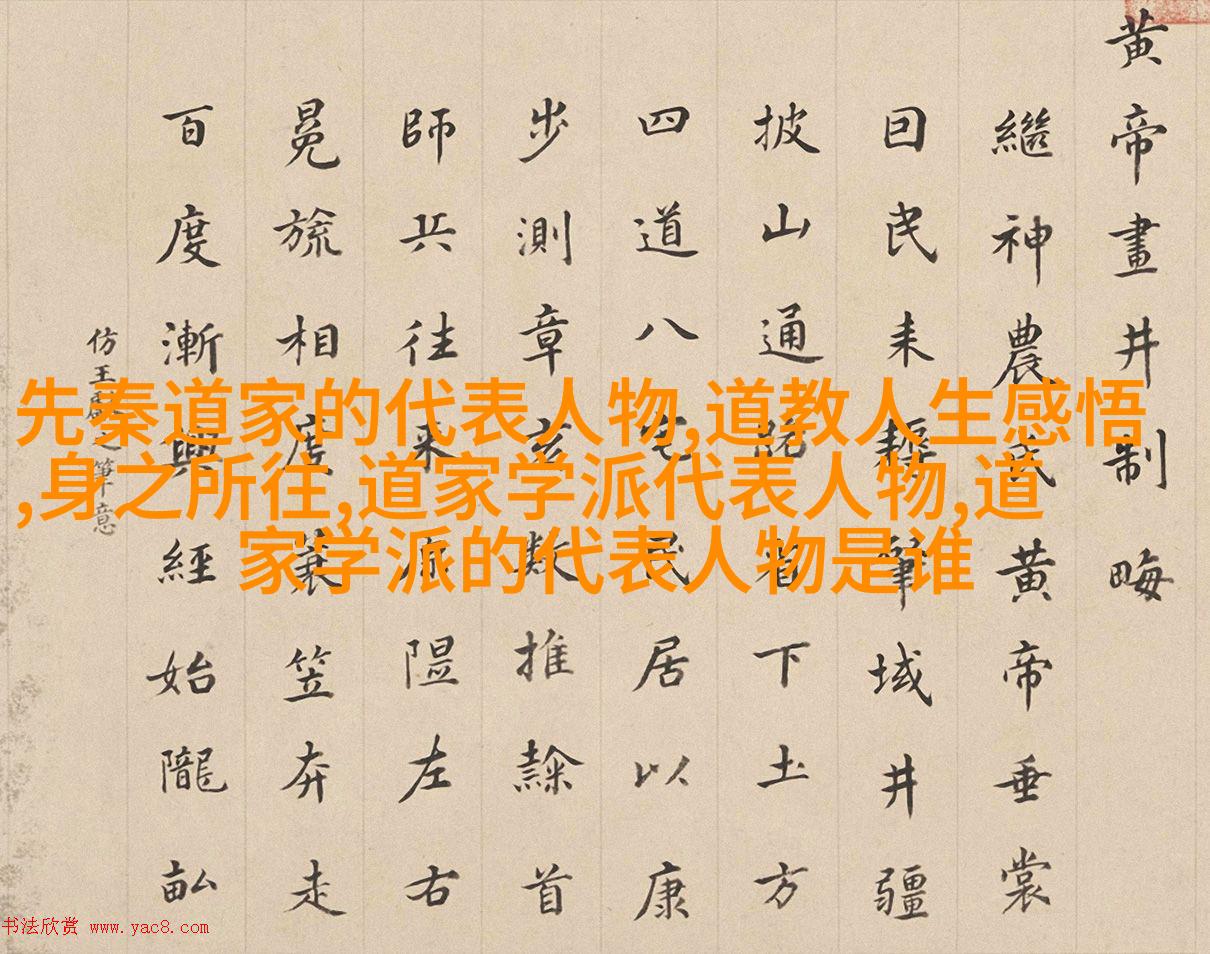 黄帝畫井制畮
繼神農氏黄帝垂裳
囙民耒耨肇域井疆
披山通路下土方
四道八宅民居以康
步測章亥數推隷首
師兵往来原隰左右
冕旒相度蓑笠奔走
百度漸興經始隴畝
仿王筆意
先秦道家的代表人物,道教人生感悟
,身之所往,道家学派代表人物,道
家学派的代表人物是谁
书法欣赏 www.yac8.com